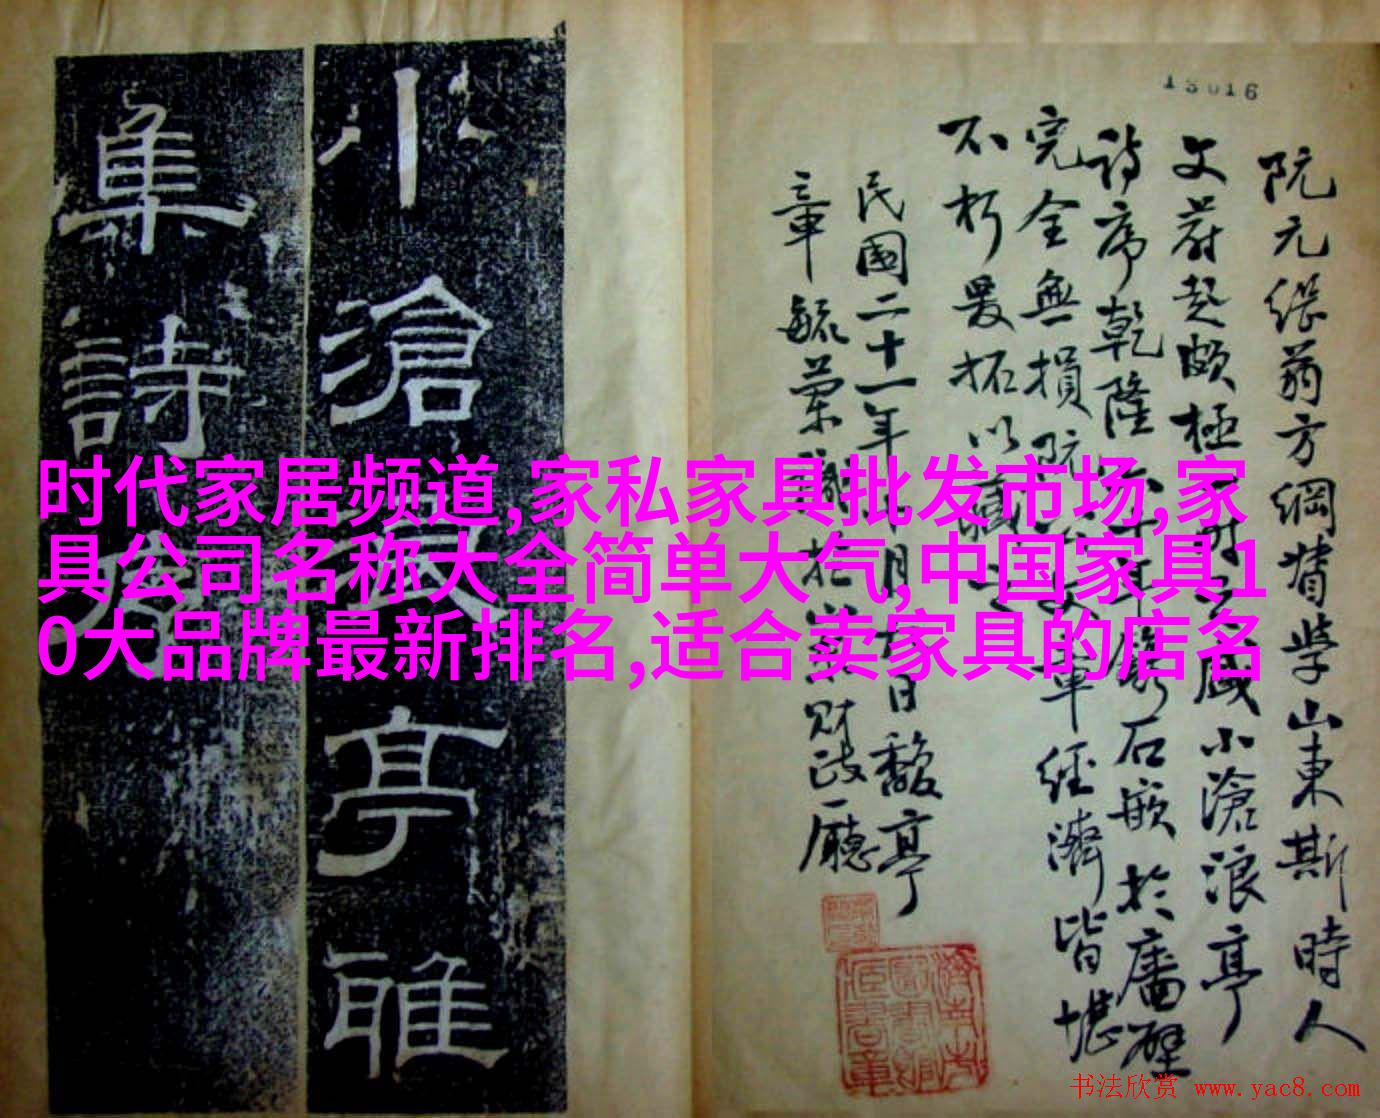 13016
阮元繼翁方綱督學山東斯時人
文蔚起頗極一時之盛小滄浪亭
詩序乾隆
石嵌於廧壁
完全無損阮
經濟皆堪
不朽爰拓以
民國二十一年
月
日馥亭
章毓蘭識於
財政廳
小滄浪亭雅
集詩序
时代家居频道,家私家具批发市场,家
具公司名称大全简单大气,中国家具1
0大品牌最新排名,适合卖家具的店名
书法欣赏 www.yac8.com